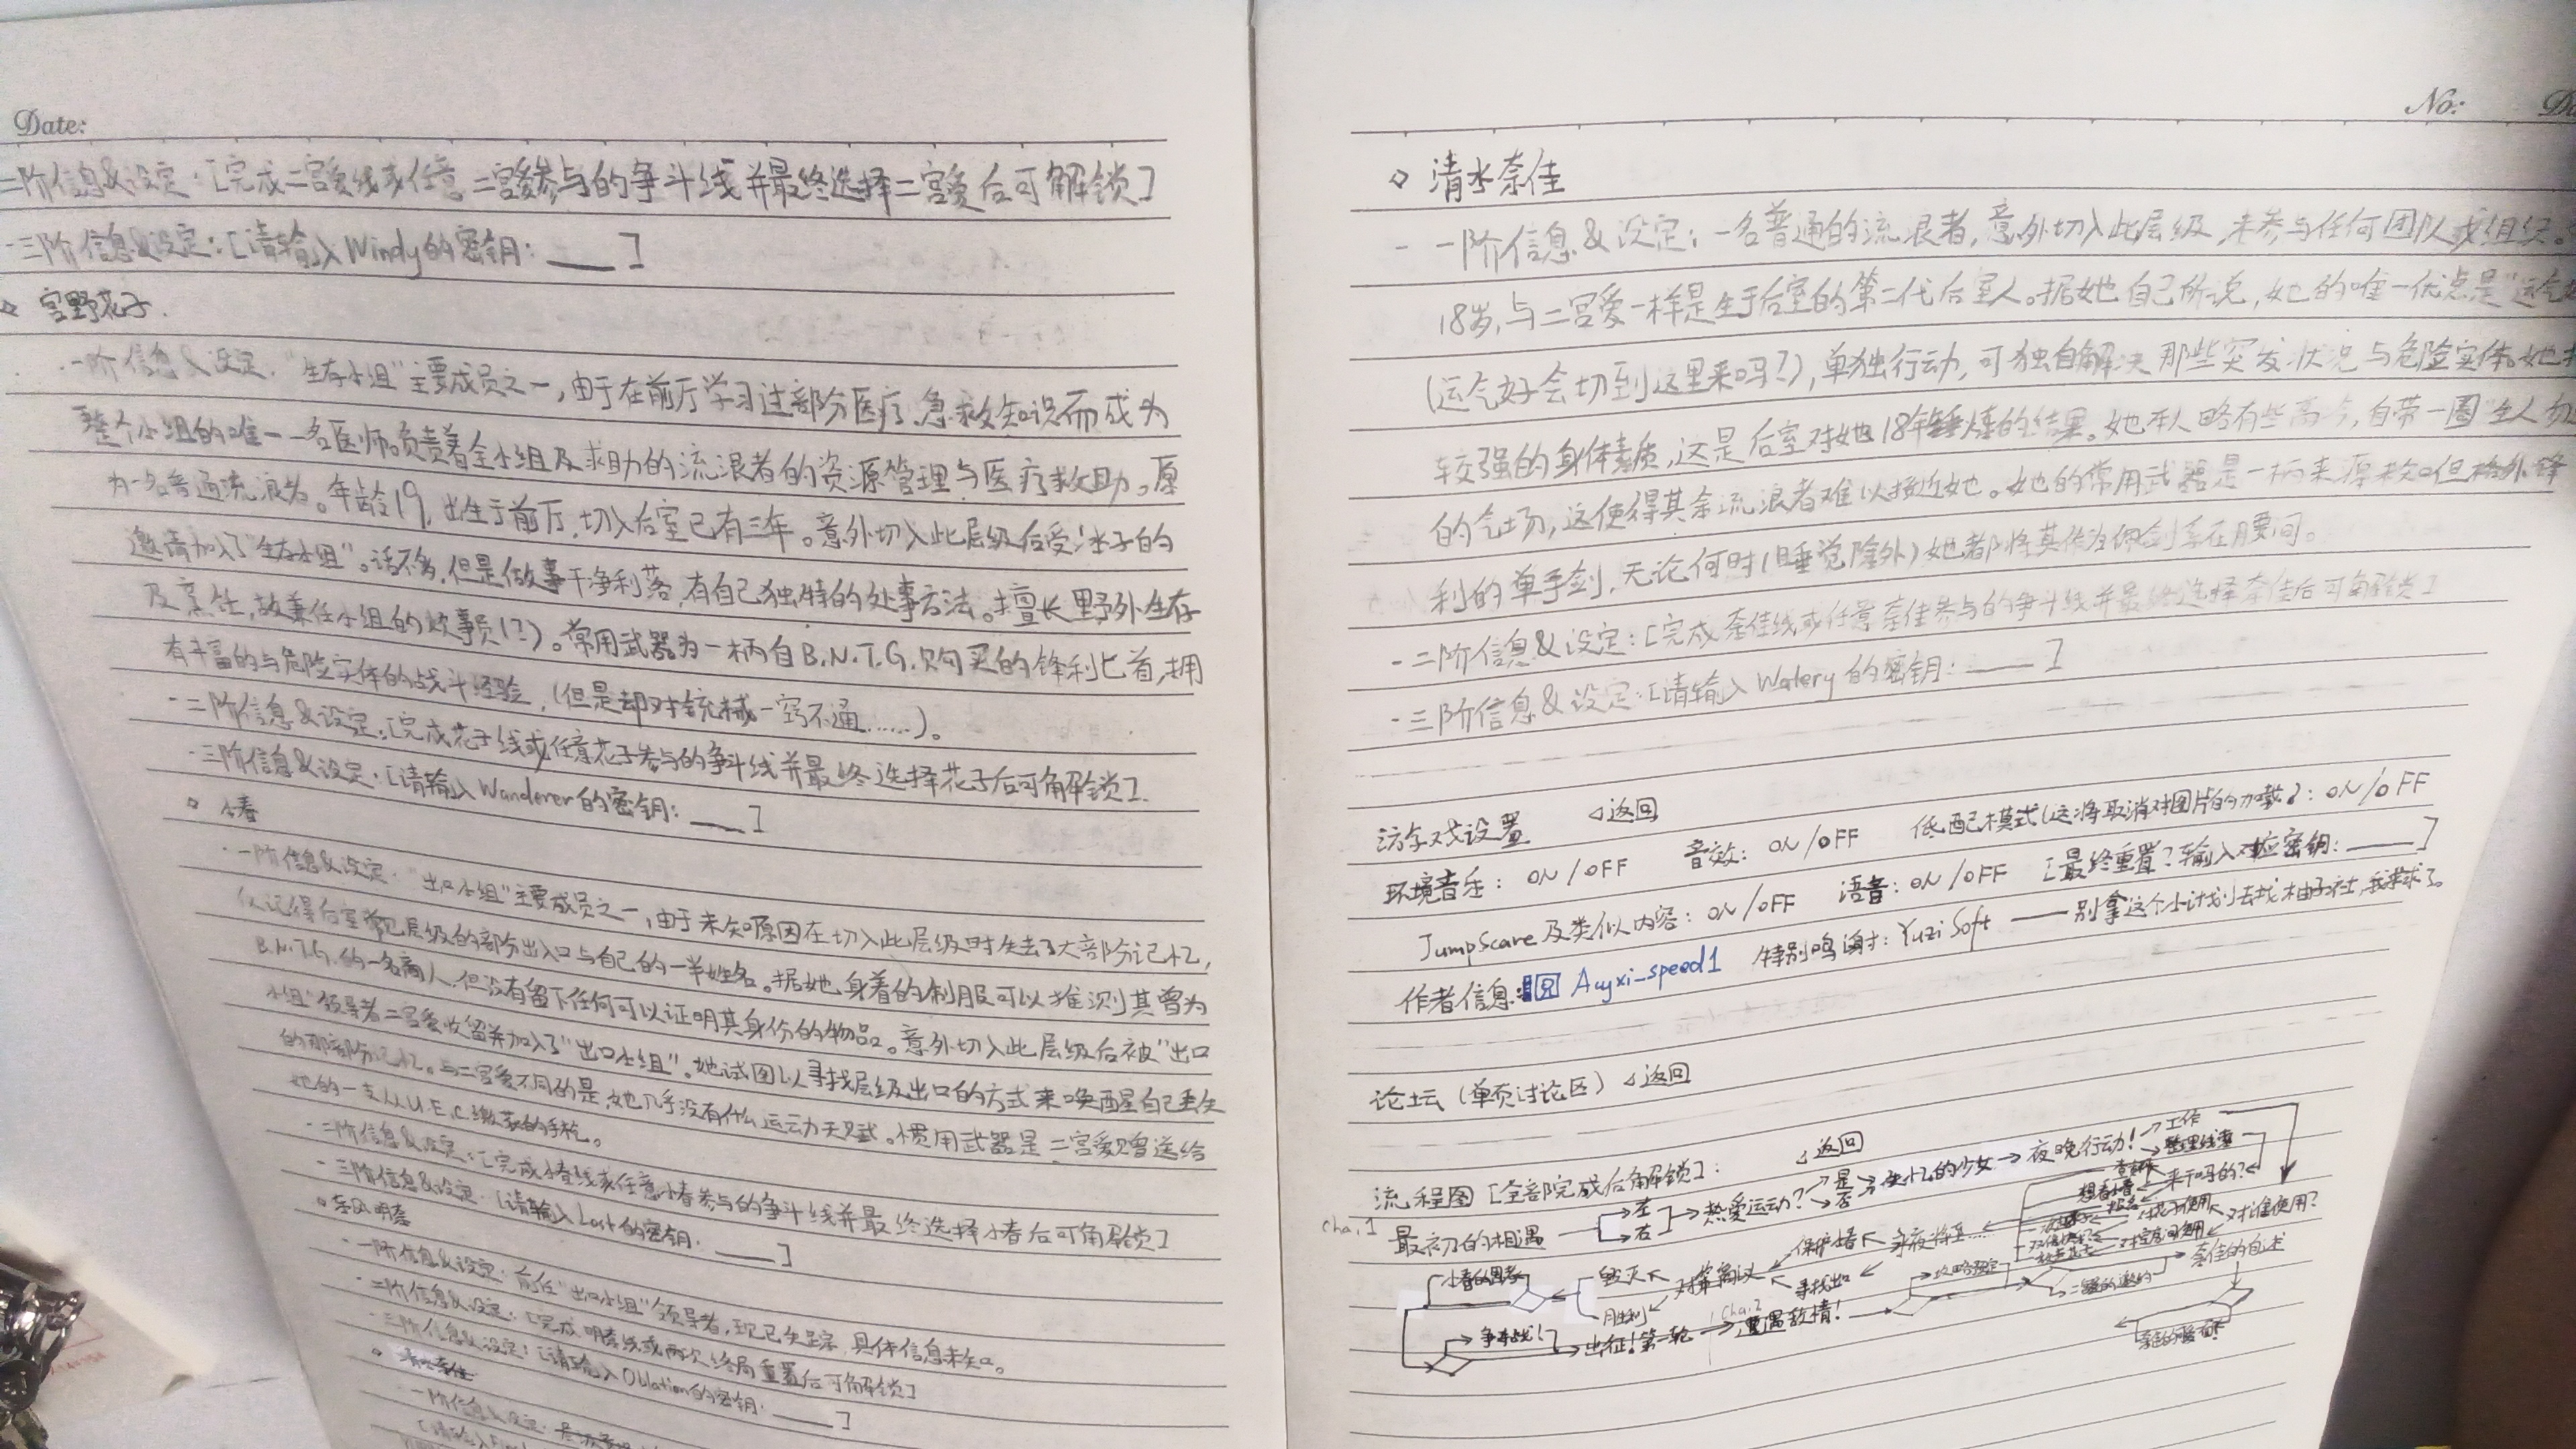 Date:
二阶信息&设定:[完成二宫爱线或任意二宫爱参与的争斗线并最终选择二宫爱后可解锁]
·三阶信息&设定:[请输入Windy的密钥:____]
◇ 宫野花子.
·一阶信息&设定:"生存小组"主要成员之一,由于在前厅学习过部分医疗、急救知识而成为
整个小组的唯一一名医师。负责着全小组及求助的流浪者的资源管理与医疗救助。原
为一名普通流浪者。年龄19,出生于前厅,切入后室已有三年。意外切入此层级后受冰子的
邀请加入了"生存小组"。话不多,但是做事干净利落,有自己独特的处事方法。擅长野外生存
及烹饪,故兼任小组的炊事员(?)。常用武器为一柄自B.N.T.G.购买的锋利匕首,拥
有丰富的与危险实体的战斗经验,(但是却对枪械一窍不通……)。
·二阶信息&设定:[完成花子线或任意花子参与的争斗线并最终选择花子后可解锁].
·三阶信息&设定:[请输入Wanderer的密钥:____]
◇ 小春
·一阶信息&设定:"出口小组"主要成员之一,由于未知原因在切入此层级时失去了大部分记忆,
仅记得后室常见层级的部分出入口与自己的一半姓名。据她身着的制服可以推测其曾为
B.N.T.G.的一名商人,但没有留下任何可以证明其身份的物品。意外切入此层级后被"出口
小组"领导者二宫爱收留并加入了"出口小组"。她试图以寻找层级出口的方式来唤醒自己丢失
的那部分记忆。与二宫爱不同的是,她几乎没有什么运动天赋。惯用武器是二宫爱赠送给
她的一支从U.E.C.缴获的手枪。
·二阶信息&设定:[完成小春线或任意小春参与的争斗线并最终选择小春后可解锁]
·三阶信息&设定:[请输入Lost的密钥:____]
◇ 东风明斋
·一阶信息&设定:前任"出口小组"领导者,现已失踪,具体信息未知。
·二阶信息&设定:[完成明斋线或两次终局重置后可解锁]
·三阶信息&设定:[请输入Oblation的密钥:____]
一阶信息&设定:
No:
◇ 清水奈佳
- 一阶信息&设定:一名普通的流浪者,意外切入此层级,未参与任何团队或组织。
18岁,与二宫爱一样是生于后室的第二代后室人。据她自己所说,她的唯一优点是"运气
(运气好会切到这里来吗?),单独行动,可独自解决那些突发状况与危险实体。她
较强的身体素质,这是后室对她18年锤炼的结果。她本人略有些高冷,自带一圈"生人勿
的气场,这使得其余流浪者难以接近她。她的常用武器是一柄来源未知但格外锋
利的单手剑,无论何时(睡觉除外)她都将其作为佩剑系在腰间。
- 二阶信息&设定:[完成奈佳线或任意奈佳参与的争斗线并最终选择奈佳后可解锁]
- 三阶信息&设定:[请输入Watery的密钥:____]
游戏设置 ◁返回 低配模式(这将取消对图片的加载):ON/OFF
环境音乐:ON/OFF 音效:ON/OFF 语音:ON/OFF [最终重置?输入对应密钥:____]
JumpScare及类似内容:ON/OFF 特别鸣谢:Yuzi Soft ——别拿这个小计划去找柚子社,我求求了。
作者信息: Auyxi_speed1
论坛(单页讨论区) ◁返回
流程图[全部完成后解锁]: ◁返回
cha.1 最初的相遇 → 左 右 → 热爱运动? → 是 否 → 失忆的少女 → 夜晚行动! → 工作 整理线索
来干吗的?
对谁使用?
保护小春
寻找出口
奈佳的自述
二宫爱的邀约
毁灭
胜利
争斗战! 出征!第一轮 → cha.2 遭遇敌情!